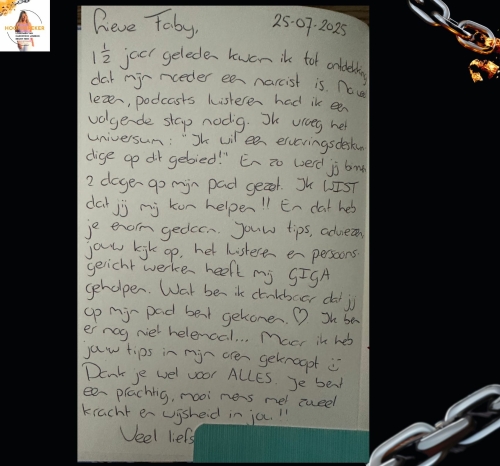 Lieve Faby,
25-07-2025
1 1/2 jaar geleden kwam ik tot ontdekking
dat mijn moeder een narcist is. Na veel
lezen, podcasts luisteren had ik een
volgende stap nodig. Ik vroeg het
universum: "Ik wil een ervaringsdeskun
dige op dit gebied!" En zo werd jij binnen
2 dagen op mijn pad gezet. Ik WIST
dat jij mij kon helpen!! En dat heb
je enorm gedaan. Jouw tips, adviezen,
jouw kijk op, het luisteren en persoons-
gericht werken heeft mij GIGA
geholpen. Wat ben ik dankbaar dat jij
op mijn pad bent gekomen. ♡ Ik ben
er nog niet helemaal... Maar ik heb
jouw tips in mijn oren geknoopt :)
Dank je wel voor ALLES. Je bent
een prachtig, mooi mens met zoveel
kracht en wijsheid in jou!!
Veel liefs